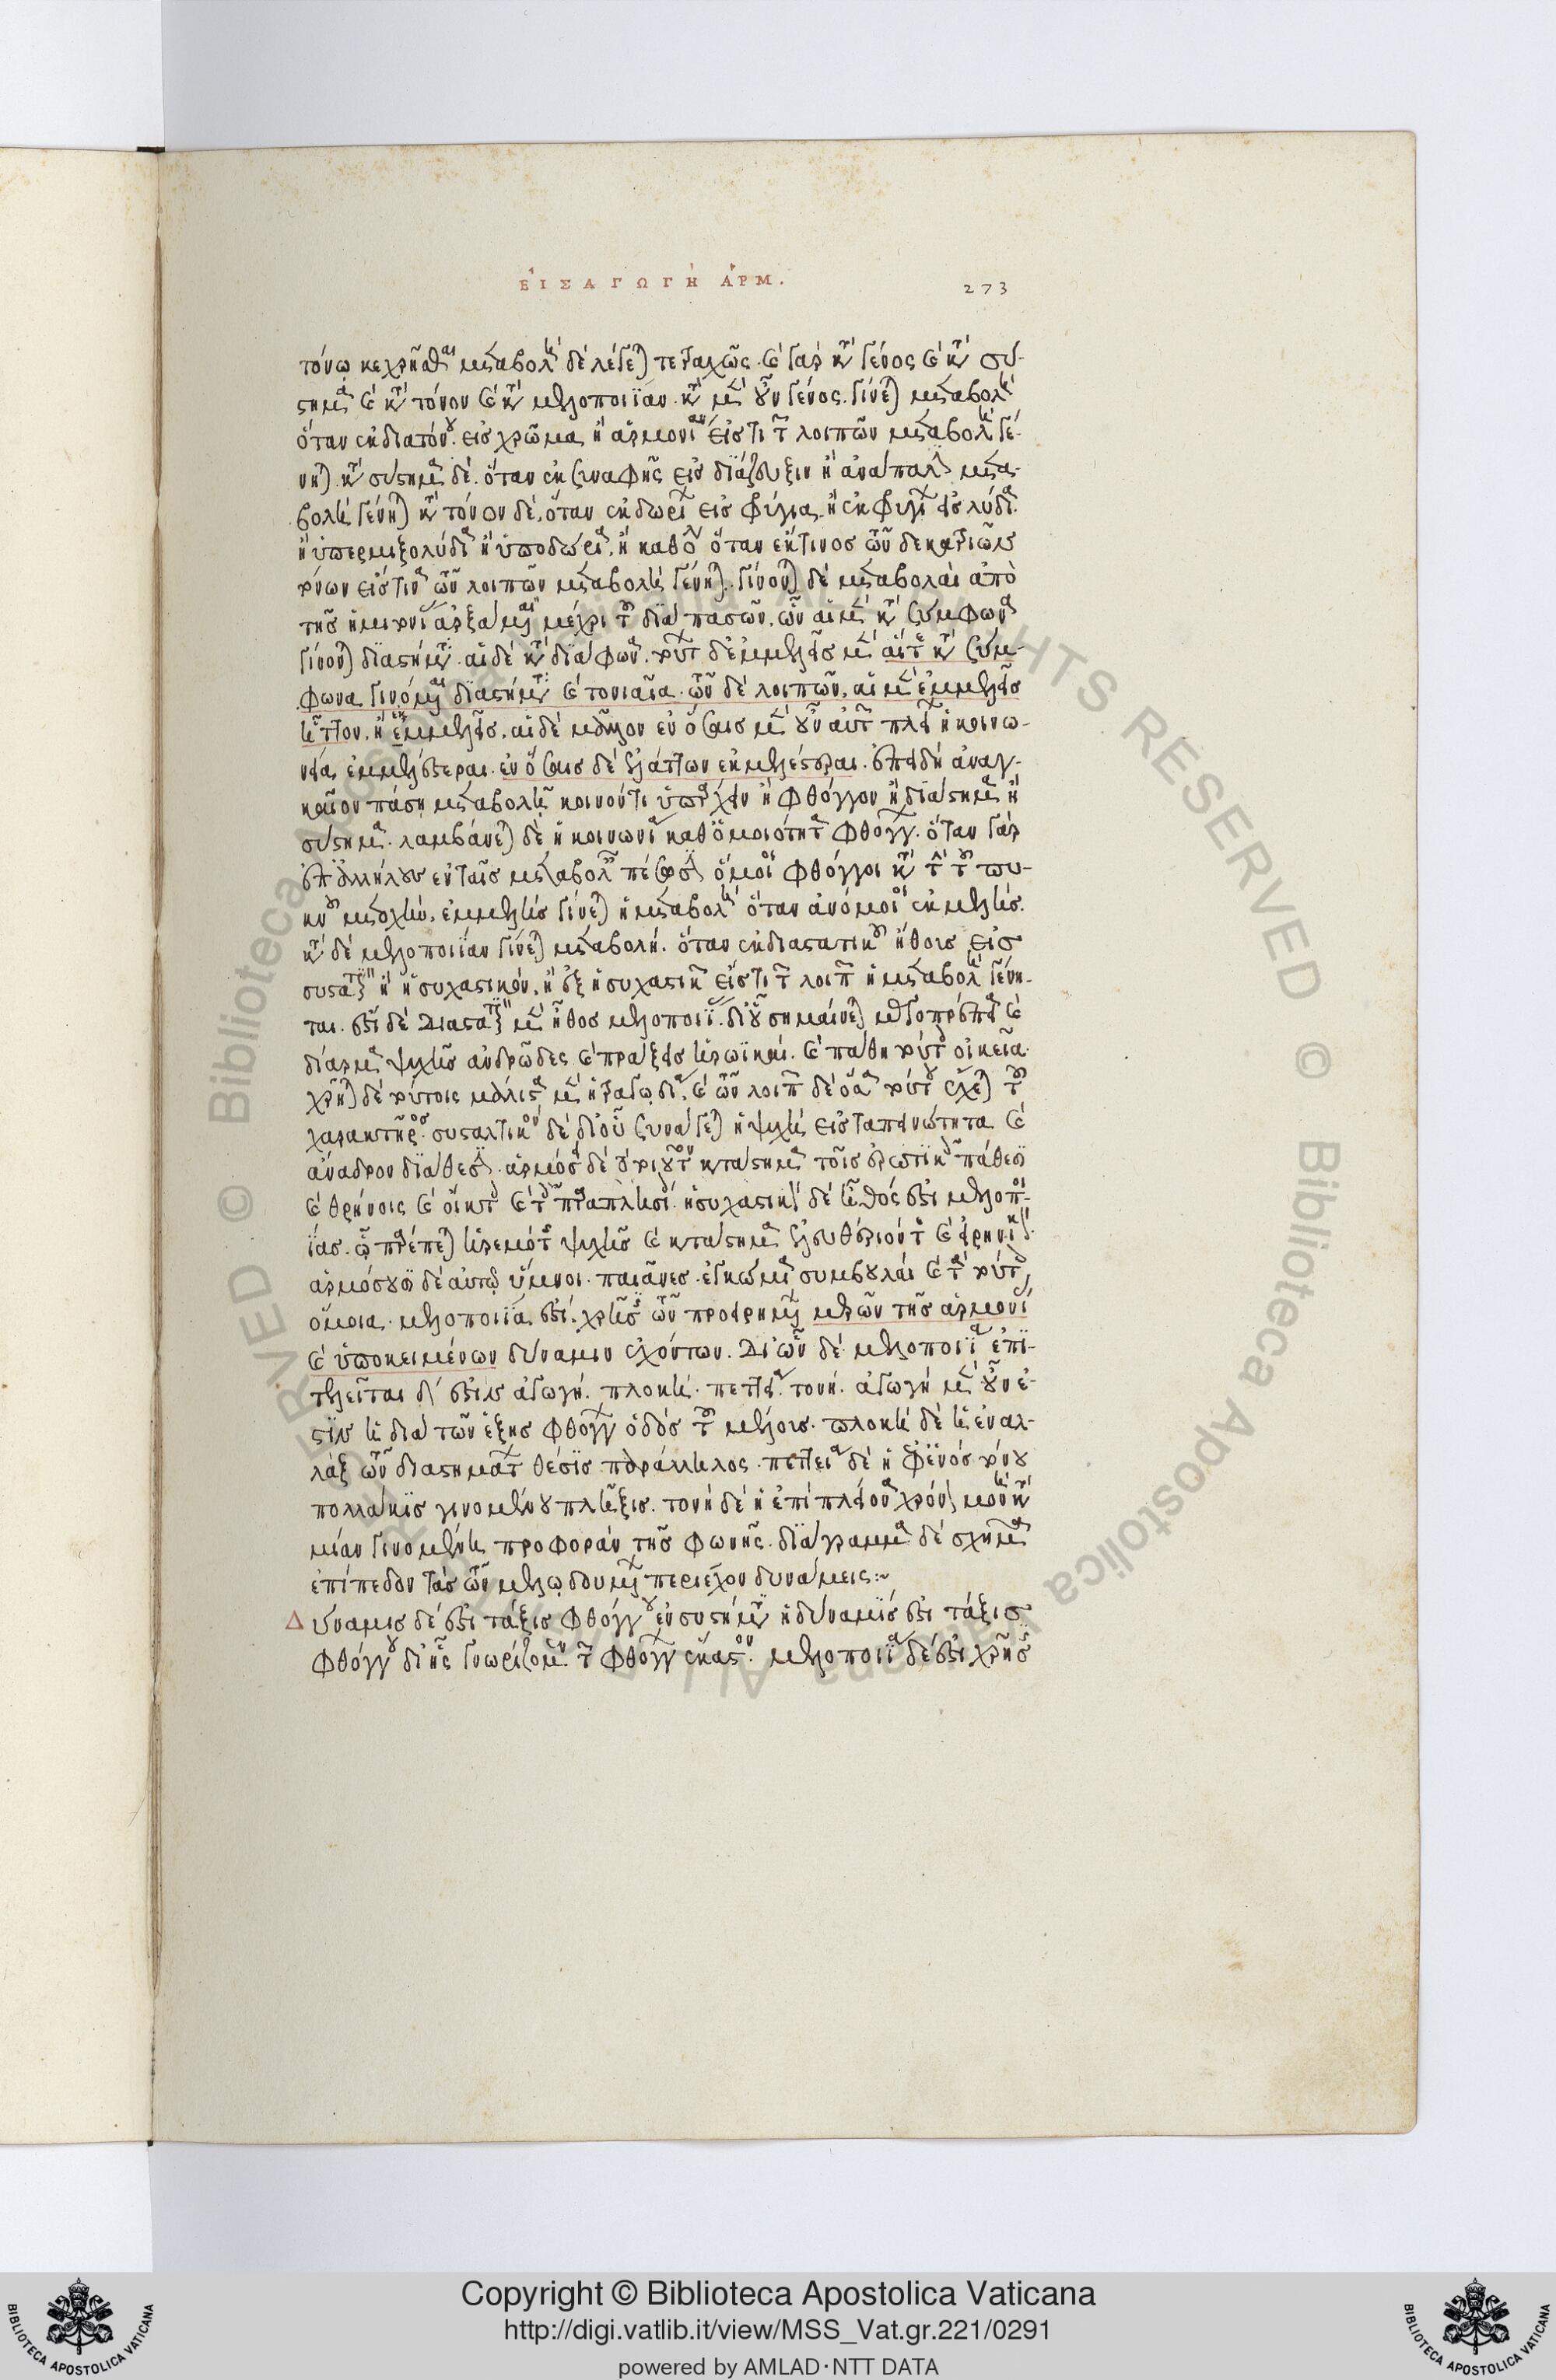 ΕἸΣΑΓΩΓῊ ἉΡΜ.
273
τόνῳ κεχρῆσθαι μεταβολὴ δὲ λέγεται τετραχῶς. καὶ γὰρ κατὰ γένος καὶ κατὰ σύ-
στημα καὶ κατὰ τόνον καὶ κατὰ μελοποιΐαν. κατὰ μὲν οὖν γένος. γίνεται μεταβολὴ
ὅταν ἐκ διατόνου. εἰς χρῶμα ἢ ἁρμονίαν εἰς τι τῶν λοιπῶν μεταβολὴ γέ-
νηται. κατὰ σύστημα δὲ. ὅταν ἐκ συναφῆς εἰς διάζευξιν ἢ ἀνάπαλιν μετα-
βολὴ γένηται κατὰ τόνον δὲ, ὅταν ἐκ δωρίων εἰς φρύγια. ἢ ἐκ φρυγίων εἰς λύδια.
ἢ ὑπερμιξολύδια ἢ ὑποδώρια. ἢ καθόλου ὅταν ἔκ τινος τῶν δεκατριῶν
τόνων εἴς τινα τῶν λοιπῶν μεταβολὴ γένηται. γίνονται δὲ μεταβολαὶ ἀπὸ
τῆς ἡμιτονιαίας ἀρξάμεναι μέχρι τοῦ διὰ πασῶν. ὧν αἱ μὲν κατὰ σύμφωνα
γίνονται διαστήματα. αἱ δὲ κατὰ διάφωνα. τούτων δ' ἐμμελεῖς μὲν αἵ τε κατὰ σύμ-
φωνα γινόμεναι διαστήματα καὶ τονιαῖα. τῶν δὲ λοιπῶν. αἱ μὲν ἐμμελεῖς
ἧττον. ἢ ἐκμελεῖς. αἱ δὲ μᾶλλον ἐν ὅσαις μὲν οὖν αὐτῶν πλείων ἡ κοινω-
νία, ἐμμελέστεραι. ἐν ὅσαις δὲ ἐλάττων ἐκμελέστεραι. ἐπειδὴ ἀναγ-
καῖον πάσῃ μεταβολῇ κοινόν τι ὑπάρχειν ἢ φθόγγον ἢ διάστημα ἢ
σύστημα. λαμβάνεται δὲ ἡ κοινωνία καθ' ὁμοιότητα φθόγγων. ὅταν γὰρ
ἐπ' ἀλλήλους ἐν ταῖς μεταβολαῖς πέσωσιν ὅμοιοι φθόγγοι κατὰ τὴν τοῦ πυ-
κνοῦ μετοχὴν, ἐμμελὴς γίνεται ἡ μεταβολὴ ὅταν ἀνόμοιοι ἐκμελής.
κατὰ δὲ μελοποιΐαν γίνεται μεταβολή. ὅταν ἐκ διασταλτικοῦ ἤθους εἰς
συσταλτικὸν ἢ ἡσυχαστικόν. ἢ ἐξ ἡσυχαστικοῦ εἴς τι τῶν λοιπῶν ἡ μεταβολὴ γένη-
ται. ἔστι δὲ διασταλτικὸν μὲν ἦθος μελοποιΐας. δι' οὗ σημαίνεται μεγαλοπρέπεια καὶ
δίαρμα ψυχῆς ἀνδρῶδες καὶ πράξεις ἡρωϊκαί. καὶ πάθη τούτοις οἰκεῖα.
χρῆται δὲ τούτοις μάλιστα μὲν ἡ τραγῳδία. καὶ τῶν λοιπῶν δὲ ὅσα τούτου ἔχεται τοῦ
χαρακτῆρος. συσταλτικὸν δὲ δι' οὗ συνάγεται ἡ ψυχὴ εἰς ταπεινότητα καὶ
ἄνανδρον διάθεσιν. ἁρμόσει δὲ τὸ τοιοῦτον κατάστημα τοῖς ἐρωτικοῖς πάθεσι
καὶ θρήνοις καὶ οἴκτοις καὶ τοῖς παραπλησίοις. ἡσυχαστικὴ δὲ ἦθός ἐστι μελοπο-
ΐας. ᾧ παρέπεται ἠρεμότης ψυχῆς καὶ κατάστημα ἐλευθέριόν τε καὶ εἰρηνικόν.
ἁρμόσουσι δὲ αὐτῷ ὕμνοι. παιᾶνες. ἐγκώμια συμβουλαὶ καὶ τὰ τούτοις
ὅμοια. μελοποιΐα ἐστὶ. χρῆσις τῶν προειρημένων μερῶν τῆς ἁρμονικῆς
καὶ ὑποκειμένων δύναμιν ἐχόντων. Δι' ὧν δὲ μελοποιΐα ἐπι-
τελεῖται δ' ἐστὶν ἀγωγή. πλοκή. πεττεία. τονή. ἀγωγὴ μὲν οὖν ἐ-
στὶν ἡ διὰ τῶν ἑξῆς φθόγγων ὁδὸς τοῦ μέλους. πλοκὴ δὲ ἡ ἐναλ-
λὰξ τῶν διαστημάτων θέσις παράλληλος. πεττεία δὲ ἡ ἐφ' ἑνὸς τόνου
πολλάκις γινομένη πλῆξις. τονὴ δὲ ἡ ἐπὶ πλείονα χρόνον μονὴ κατὰ
μίαν γινομένη προφορὰν τῆς φωνῆς. διάγραμμα δὲ σχῆμα
ἐπίπεδον τὰς τῶν μελῳδουμένων περιέχον δυνάμεις:~
Δύναμις δέ ἐστι τάξις φθόγγου ἐν συστήματι ἢ δύναμίς ἐστι τάξις
φθόγγου δι' ἧς γνωρίζομεν τῶν φθόγγων ἕκαστον. μελοποιΐα δέ ἐστι χρῆσις
Copyright © Biblioteca Apostolica Vaticana
http://digi.vatlib.it/view/MSS_Vat.gr.221/0291
powered by AMLAD·NTT DATA
BIBLIOTECA APOSTOLICA VATICANA
BIBLIOTECA APOSTOLICA VATICANA